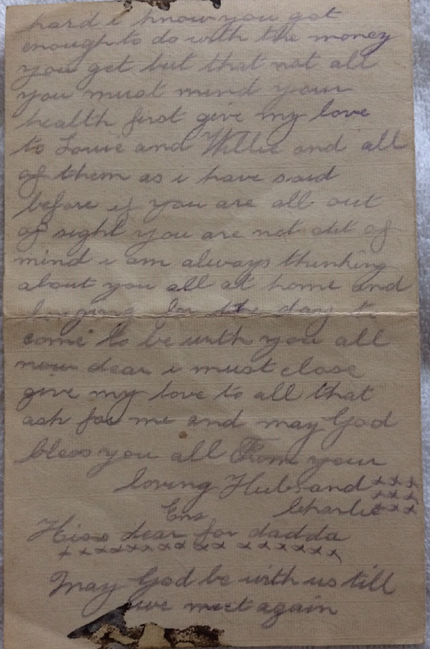 hard i know you got
enough to do with the money
you get but that not all
you must mind your
health first give my love
to Louie and Willie and all
of them as i have said
before if you are all out
of sight you are not out of
mind i am always thinking
about you all at home and
longing for the day to
come to be with you all
now dear i must close
give my love to all that
ask for me and may God
bless you all From your
loving Husband xxx
xxx
Charlie xxx
Kiss dear for dadda
xxxxxxxxxxxxx
May God be with us till
we meet again